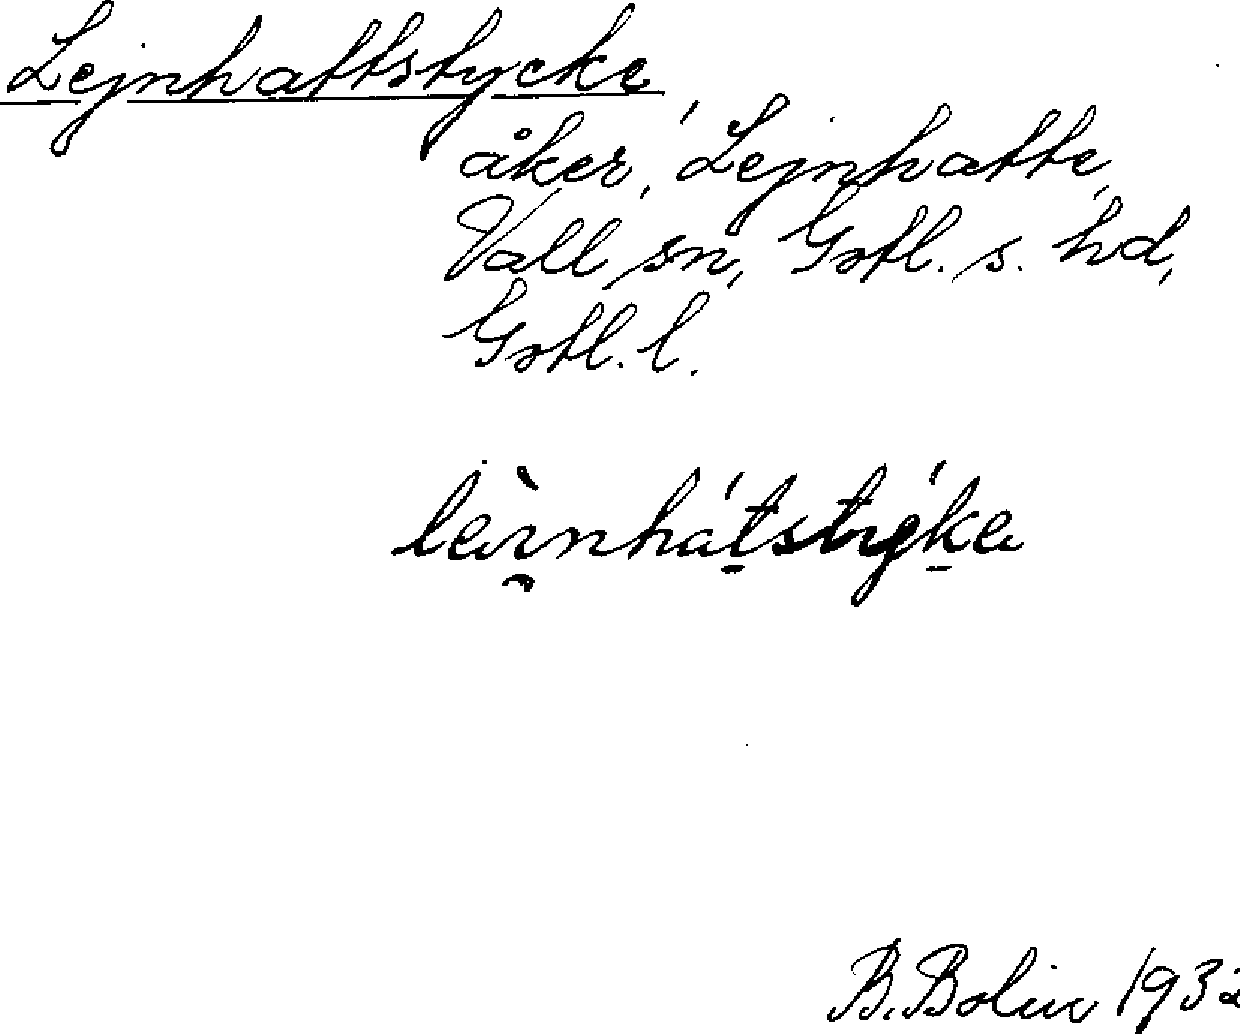 Lejnhattstycke,
åker, Lejnhatte,
Vall sn, Gotl. s. hd,
Gotl. l.
B. Bolin 1932